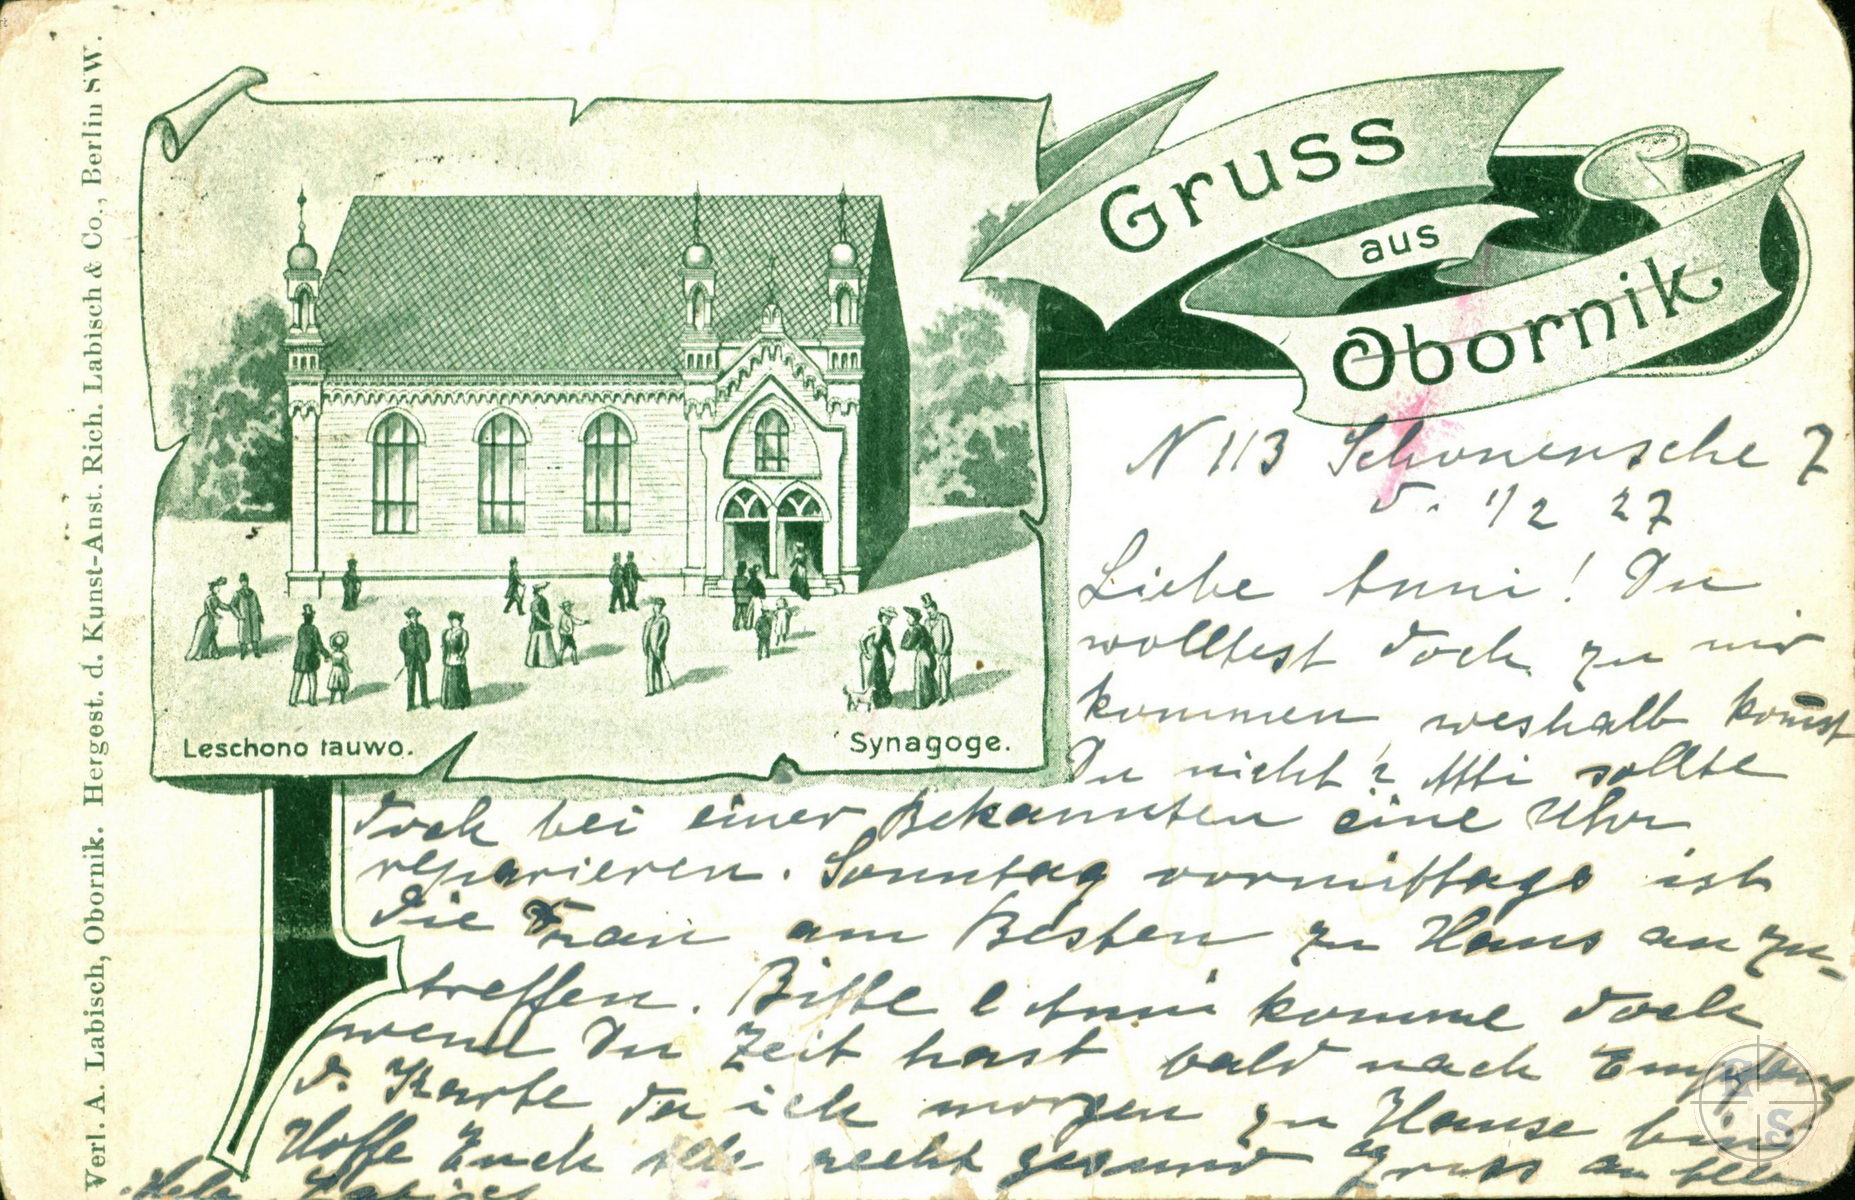 Gruss
aus
Obornik
Leschono tauwo.
Synagoge.
Verl. A. Labisch, Obornik. Hergest. d. Kunst-Anst. Rich. Labisch & Co., Berlin SW.
N 113 Schonensche 7
d. 1/2 27
Liebe Anni! Du
wolltest doch zu mir
kommen weshalb komst
Du nicht? sollte
doch bei einer Bekannten eine Uhr
reparieren. Sonntag vormittags ist
die Frau am Besten zu Haus an zu-
treffen. Bitte l Anni komme doch
wenn Du Zeit hast bald nach Empfang
d. Karte da ich morgen zu Hause bin
Hoffe Euch alle recht gesund Gruss an alle